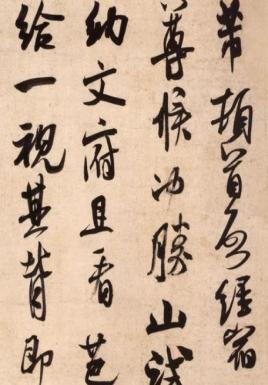 芾頓首啓經宿
尊候冲勝山試
納文府且看芭
給一視其背即